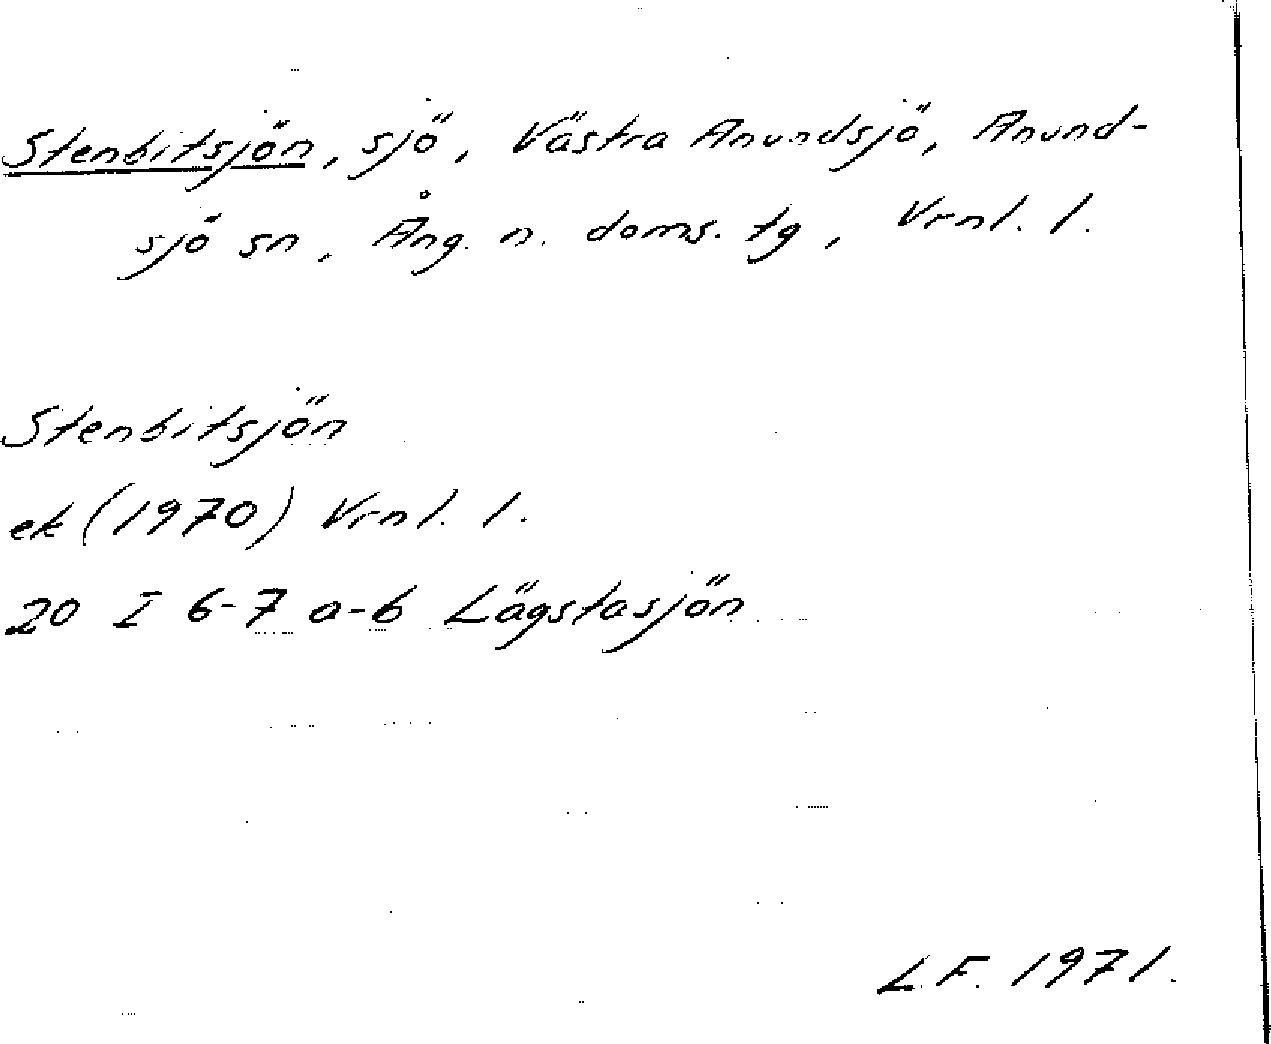 Stenbitsjön, sjö, Västra Anundsjö, Anund-
sjö sn, Ång. n. doms. tg, Vrnl. l.
Stenbitsjön
ek (1970) Vrnl. l.
20 I 6-7 a-b Lägstasjön
L.F. 1971.